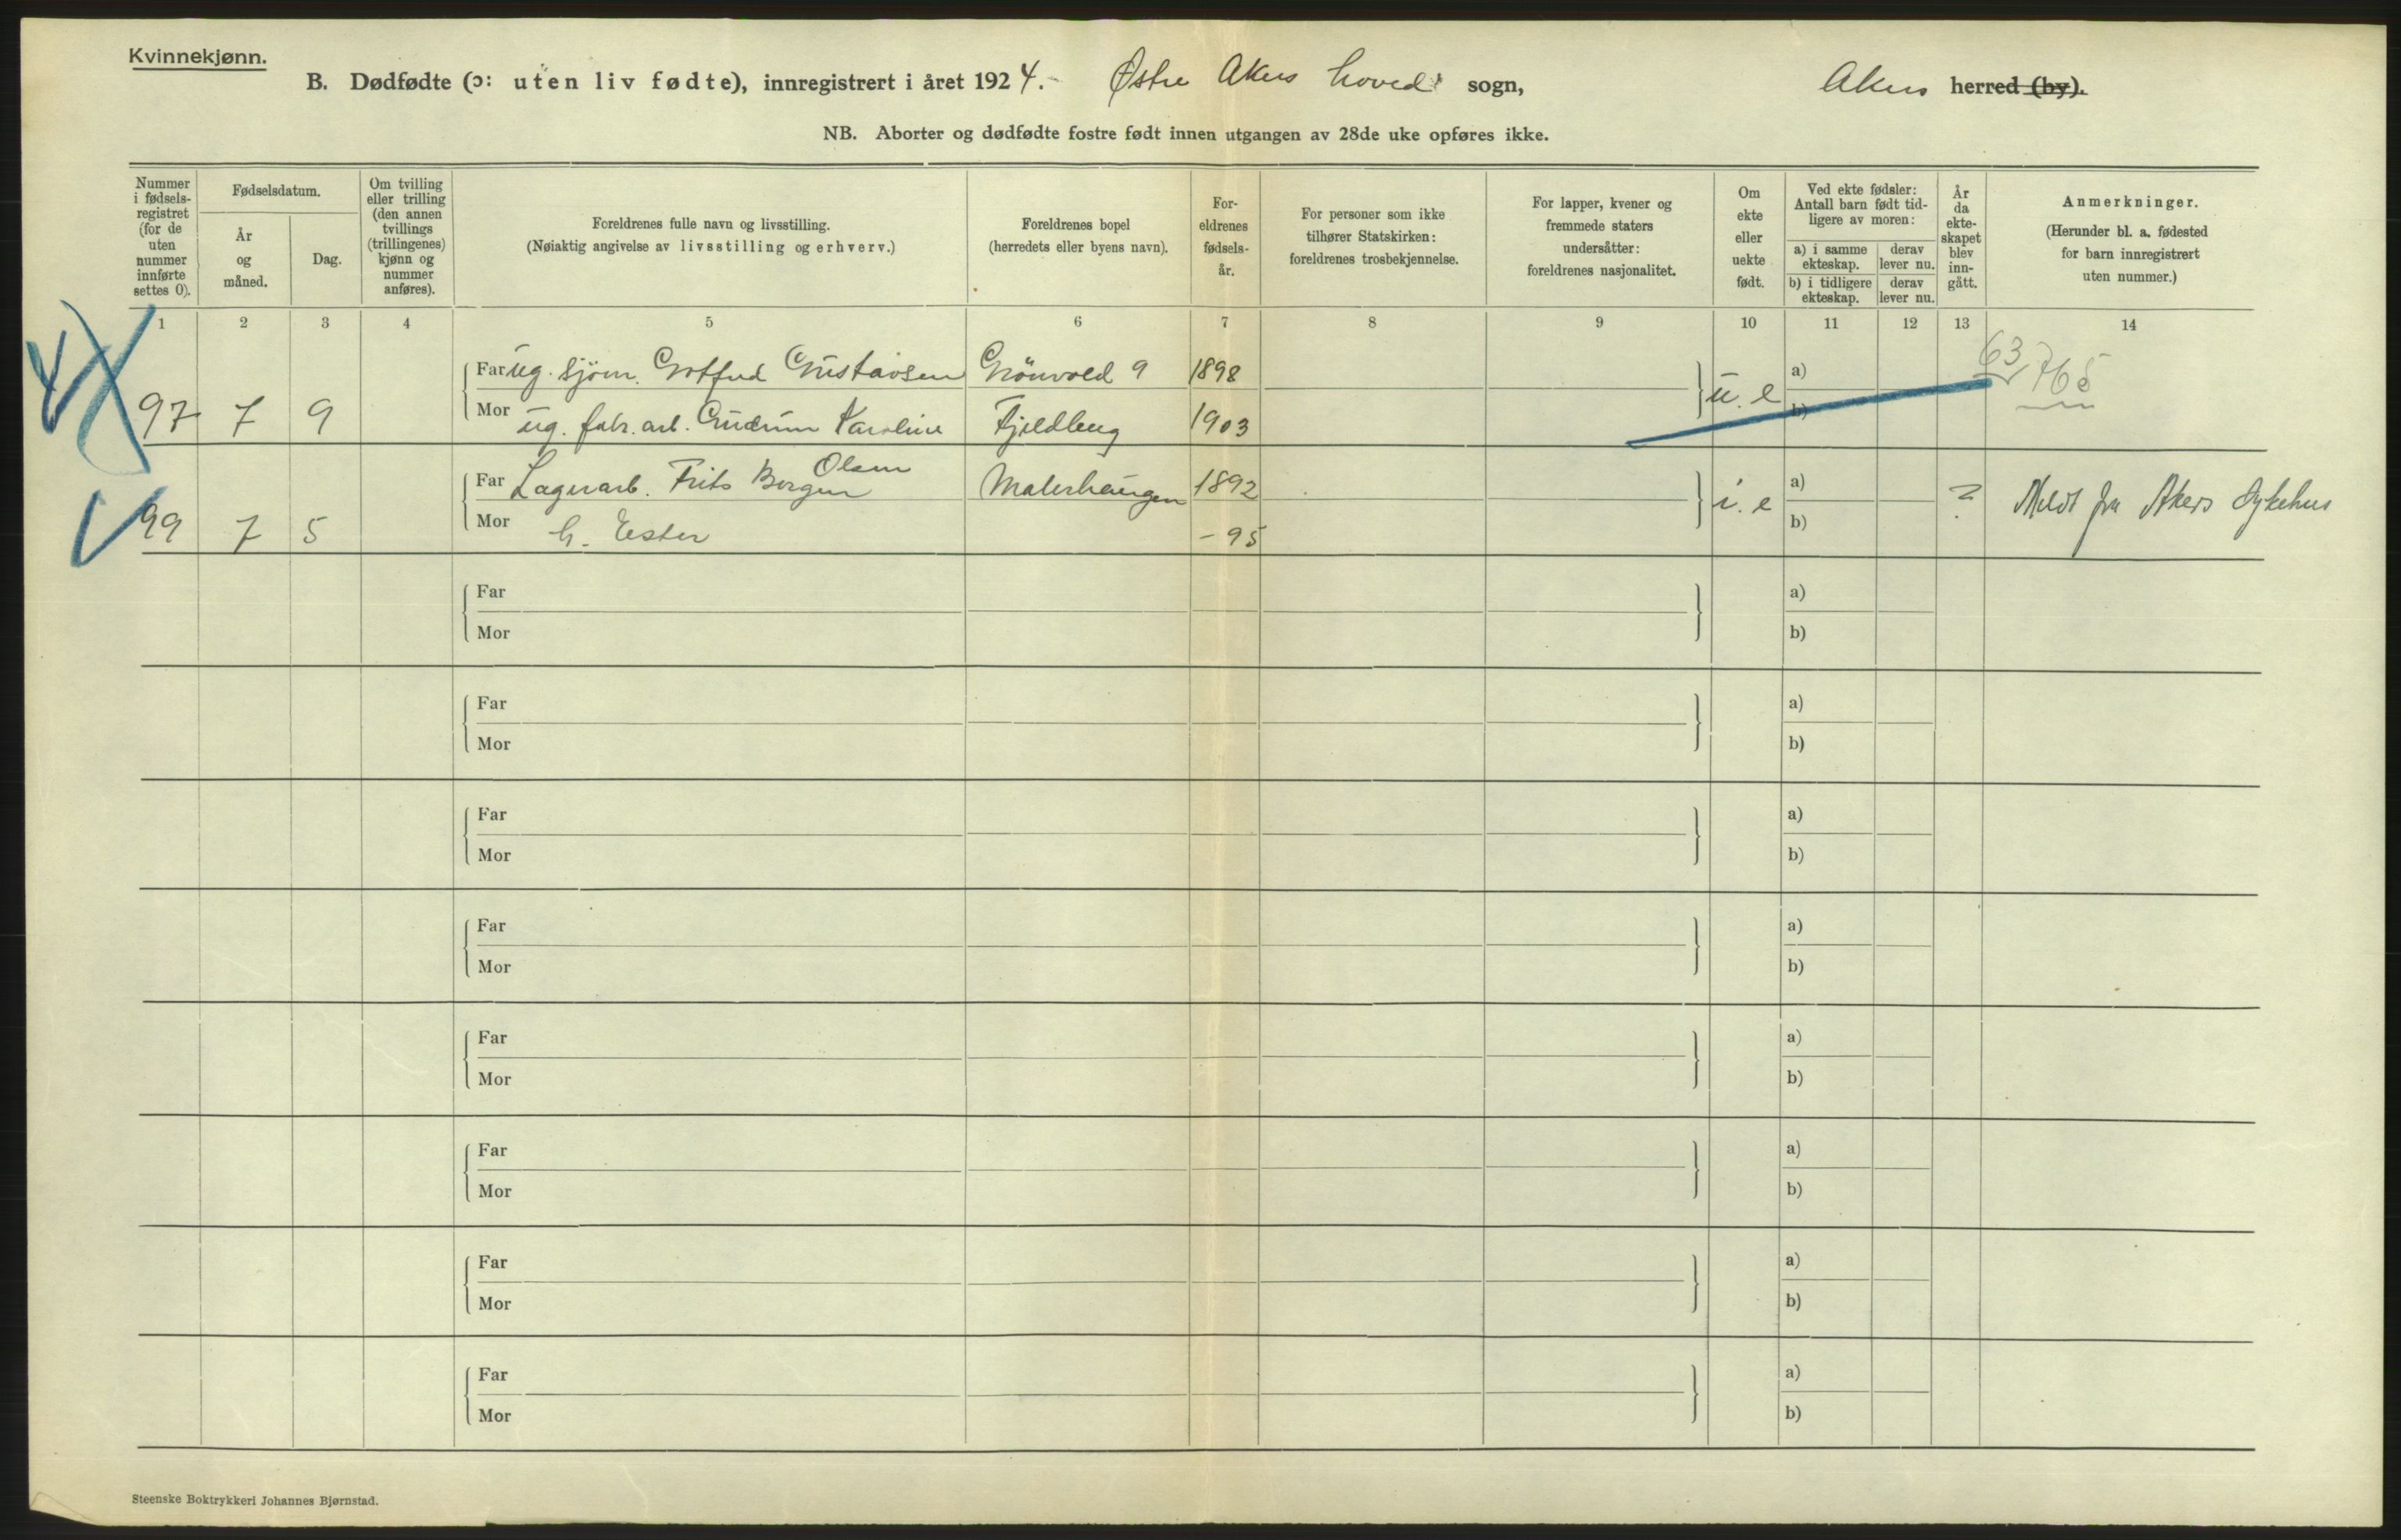 Kvinnekjønn.
B. Dødfødte (ɔ: uten liv fødte), innregistrert i året 1924. Østre Akers hoved sogn, Akers herred (by).
NB. Aborter og dødfødte fostre født innen utgangen av 28de uke opføres ikke.
Nummer i fødsels-registret (for de uten nummer innførte settes 0).
Fødselsdatum.
År og måned.
Dag.
Om tvilling eller trilling (den annen tvillings (trillingenes) kjønn og nummer anføres).
Foreldrenes fulle navn og livsstilling.
(Nøiaktig angivelse av livsstilling og erhverv.)
Foreldrenes bopel
(herredets eller byens navn).
For-eldrenes fødsels-år.
For personer som ikke tilhører Statskirken: foreldrenes trosbekjennelse.
For lapper, kvener og fremmede staters undersåtter: foreldrenes nasjonalitet.
Om ekte eller uekte født.
Ved ekte fødsler: Antall barn født tid-ligere av moren:
a) i samme ekteskap. derav lever nu.
b) i tidligere ekteskap. derav lever nu.
År da ekte-skapet blev inn-gått.
Anmerkninger.
(Herunder bl. a. fødested for barn innregistrert uten nummer.)
1 2 3 4 5 6 7 8 9 10 11 12 13 14
Far ug. sjøm. Gotfred Gustavsen Grönvold 9 1898 a) 63/765
97 7 9 Mor ug. fabr. arb. Gudrun Karoline Fjeldberg 1903 u. e b)
Olsen
Far Lagerarb. Frits Borgen Malerhaugen 1892 a)
99 7 5 Mor h. Ester - 95 i. e b) ? Meldt fra Akers Sykehus
Far a)
Mor b)
Far a)
Mor b)
Far a)
Mor b)
Far a)
Mor b)
Far a)
Mor b)
Far a)
Mor b)
Far a)
Mor b)
Far a)
Mor b)
Steenske Boktrykkeri Johannes Bjørnstad.